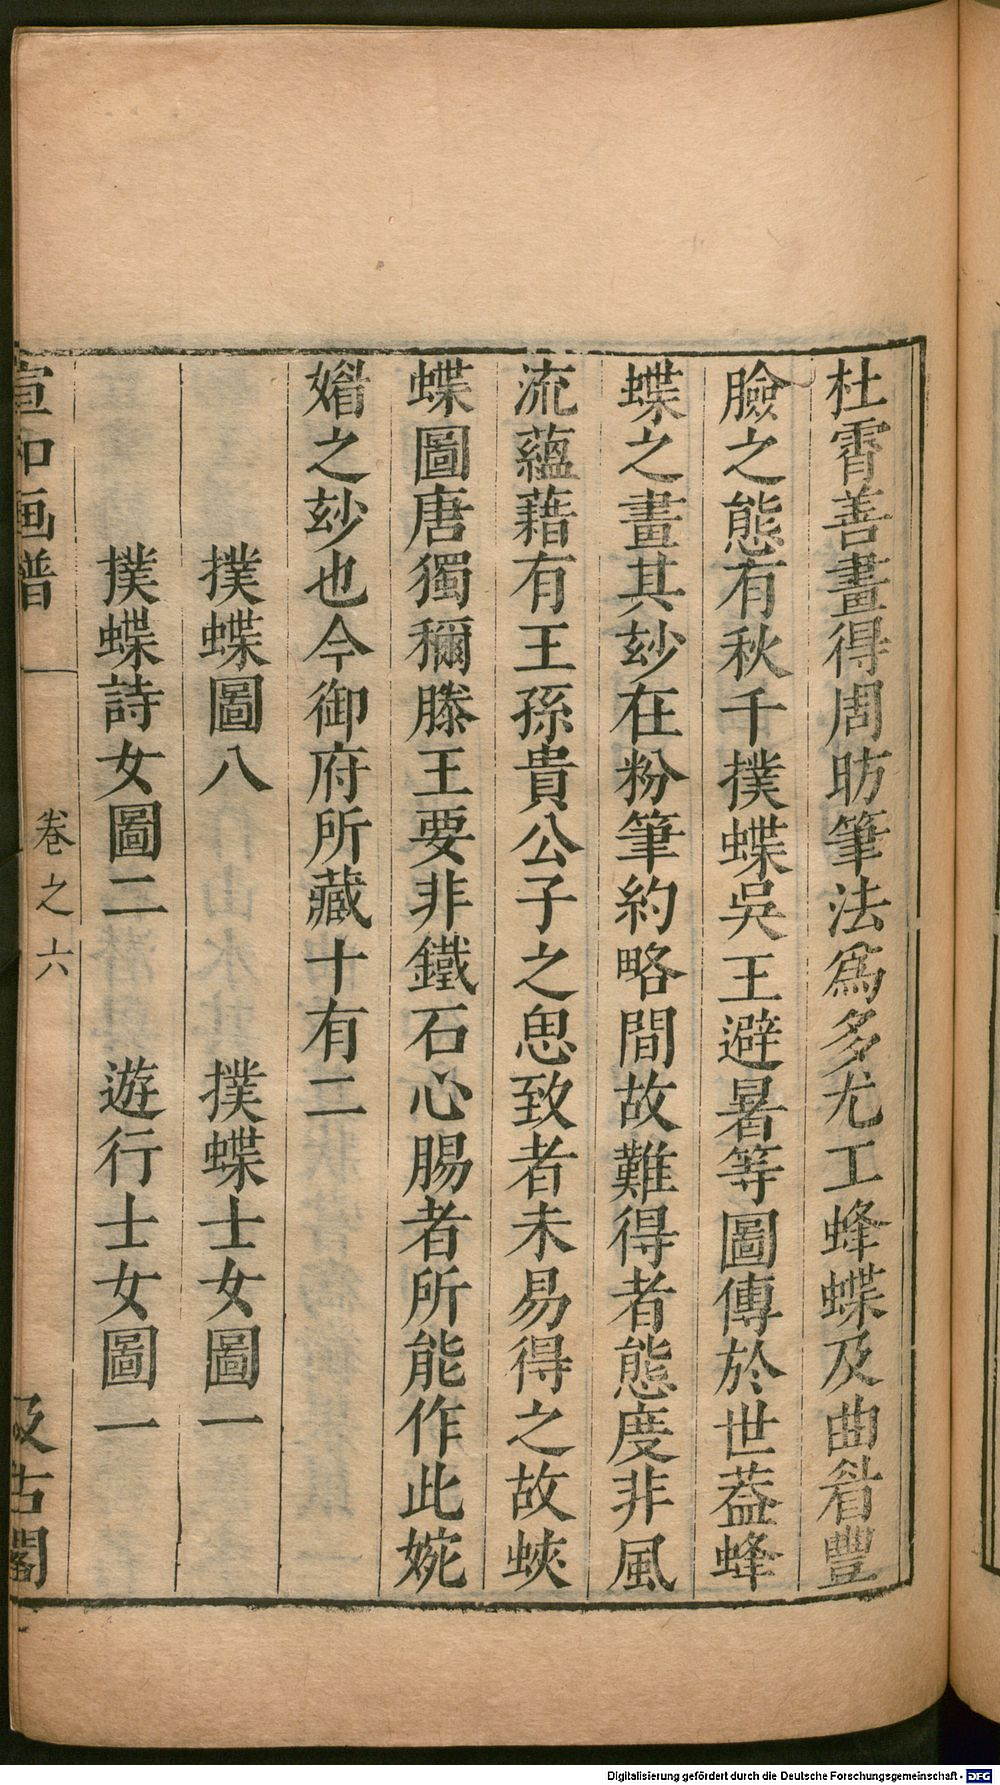 杜霄善畫得周昉筆法爲多尤工蜂蝶及曲眉豐
臉之態有秋千撲蝶吳王避暑等圖傳於世葢蜂
蝶之畫其玅在粉筆約略間故難得者態度非風
流蘊藉有王孫貴公子之思致者未易得之故蛺
蝶圖唐獨稱滕王要非鐵石心腸者所能作此婉
媚之玅也今御府所藏十有二
撲蝶圖八 撲蝶士女圖一
撲蝶詩女圖二 遊行士女圖一
宣和画譜 卷之六 汲古閣
Digitalisierung gefördert durch die Deutsche Forschungsgemeinschaft - DFG